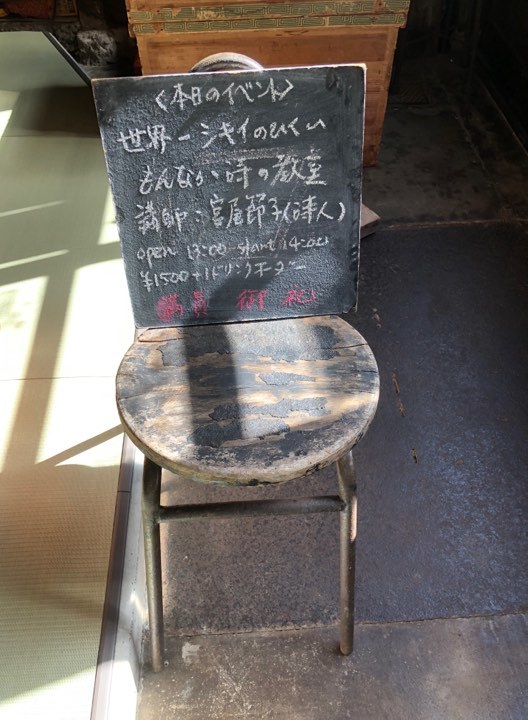 〈本日のイベント〉
世界一シキイのひくい
もんなか 詩の教室
講師：宮尾節子(詩人)
open 13:00 start 14:00
¥1500+1ドリンクオーダー
満員 御礼